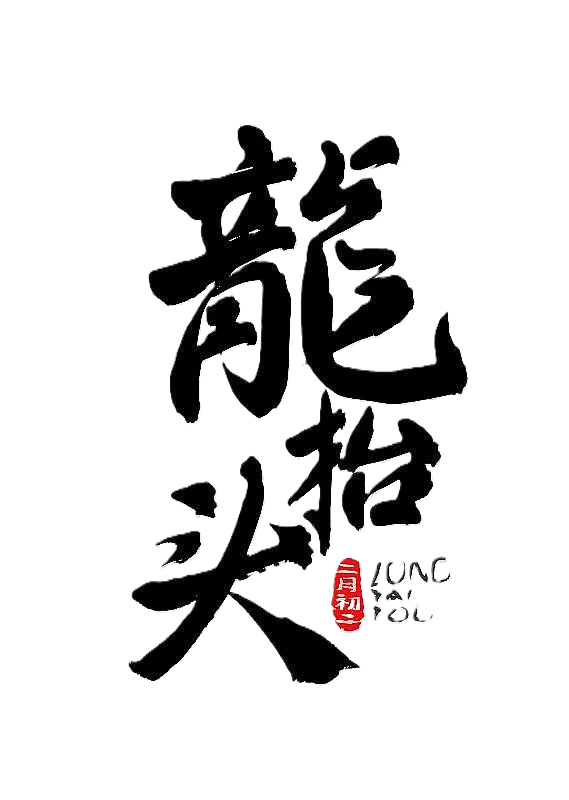 龍
抬
头
二月初二
LONG
TAI
TOU